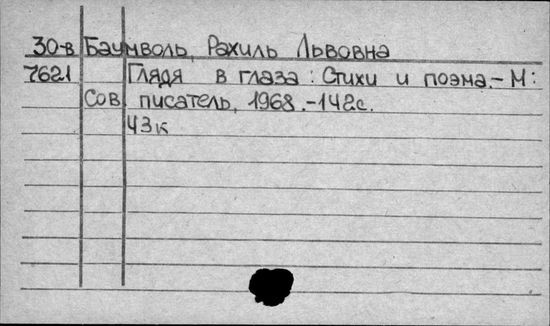 30-в Баумволь, Рахиль Львовна
7621 Глядя в глаза: Стихи и поэма.- М:
Сов писатель, 1968.-142с.
43к